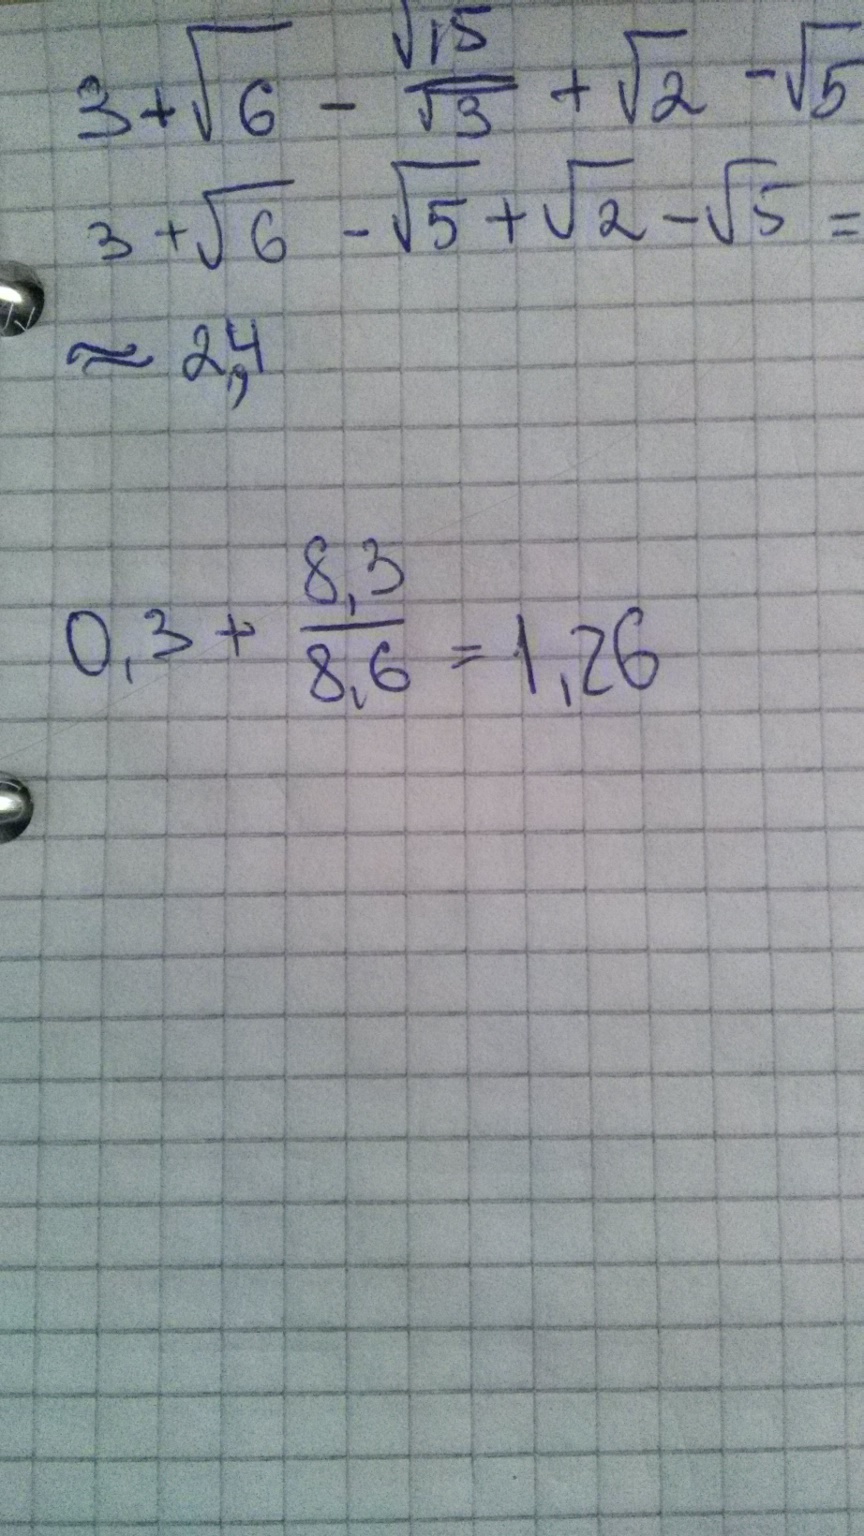 3 + √6 - √15/√3 + √2 - √5
3 + √6 - √5 + √2 - √5 =
≈ 2,4
0,3 + 8,3/8,6 = 1,26